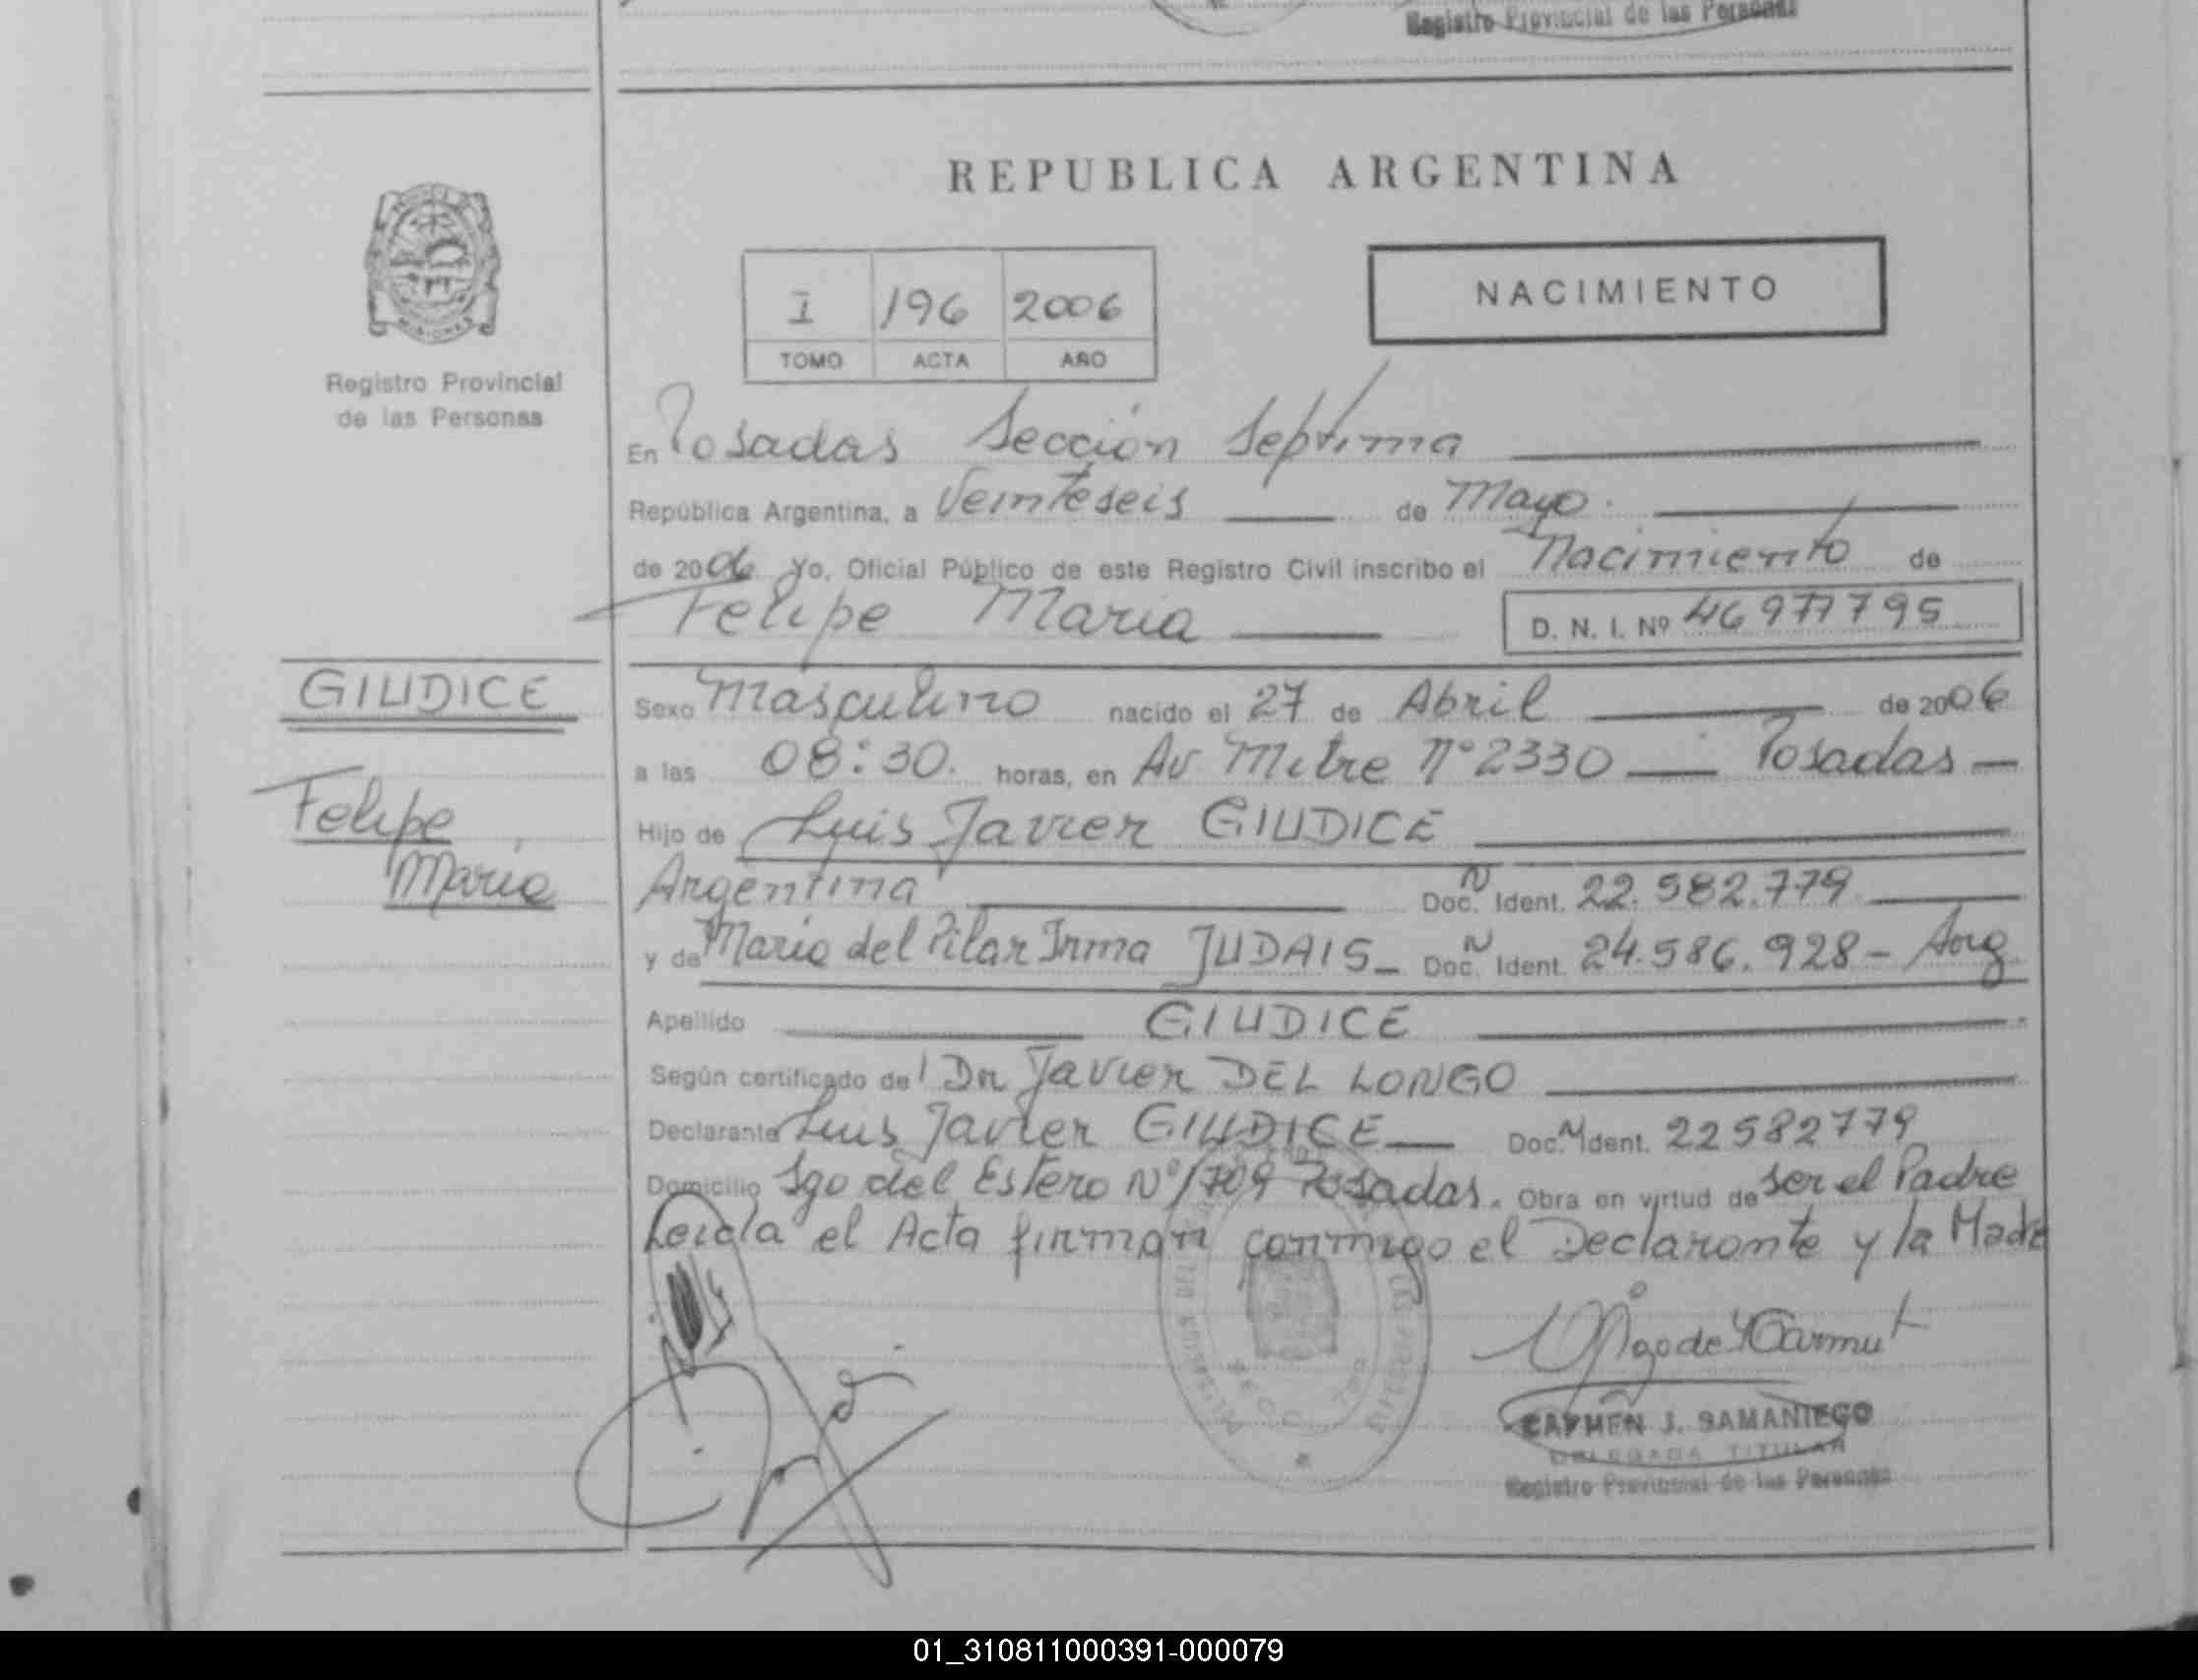 Registro Provincial de las Personas
REPUBLICA ARGENTINA
MISIONES
Registro Provincial
de las Personas
I 196 2006
TOMO ACTA AÑO
NACIMIENTO
En Posadas Sección Septima
República Argentina, a Veinteseis de Mayo.
de 2006 Yo, Oficial Público de este Registro Civil inscribo el Nacimiento de
Felipe Maria
D. N. I. Nº 46977795
GIUDICE
Felipe
Maria
Sexo Masculino nacido el 27 de Abril de 2006
a las 08:30. horas, en Av Mitre Nº 2330 Posadas
Hijo de Luis Javier GIUDICE
Argentina Doc. N Ident. 22.582.779
y de Maria del Pilar Irma JUDAIS Doc. N Ident. 24.586.928 - Arg
Apellido GIUDICE
Según certificado del Dr Javier DEL LONGO
Declarante Luis Javier GIUDICE Doc. N Ident. 22582779
Domicilio Sgo del Estero Nº 1709 Posadas. Obra en virtud de ser el Padre
Leida el Acta firman conmigo el Declarante y la Madre
CARMEN J. SAMANIEGO
DELEGADA TITULAR
Registro Provincial de las Personas
01_310811000391-000079